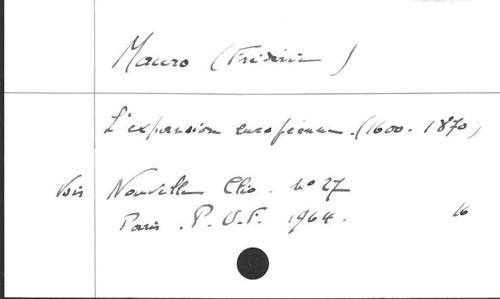 Mauro (Frédéric)
L'expansion européenne. (1600-1870)
Voir Nouvelle Clio. nº 27
Paris. P.U.F. 1964.
16